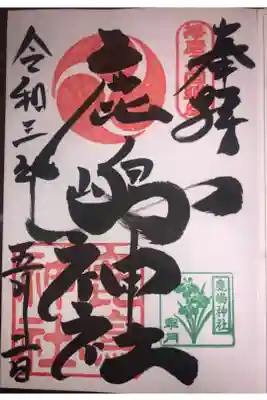 奉拝
鹿嶋神社
令和三年
鹿嶋神社
鹿嶋神社
皐月